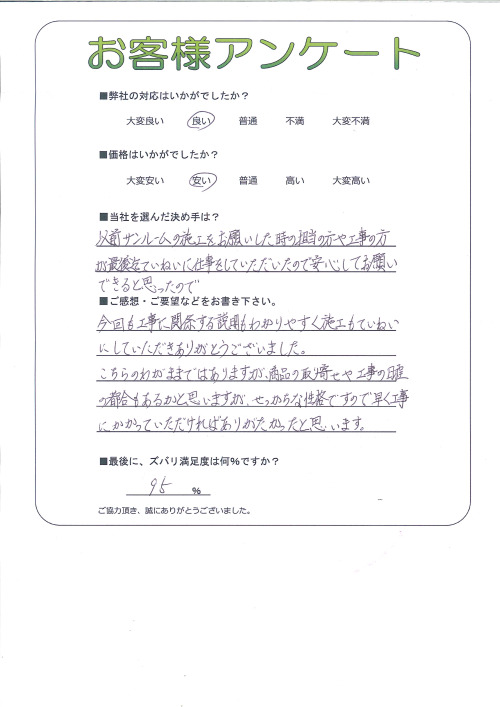 お客様アンケート
■弊社の対応はいかがでしたか？
大変良い 良い 普通 不満 大変不満
■価格はいかがでしたか？
大変安い 安い 普通 高い 大変高い
■当社を選んだ決め手は？
以前サンルームの施工をお願いした時の担当の方や工事の方
が最後までていねいに仕事をしていただいたので安心してお願い
できると思ったので
■ご感想・ご要望などをお書き下さい。
今回も工事に関係する説明もわかりやすく施工もていねい
にしていただきありがとうございました。
こちらのわがままではありますが、商品の取寄せや工事の日程
の都合もあるかと思いますが、せっかちな性格ですので早く工事
にかかっていただければありがたかったと思います。
■最後に、ズバリ満足度は何％ですか？
95 ％
ご協力頂き、誠にありがとうございました。